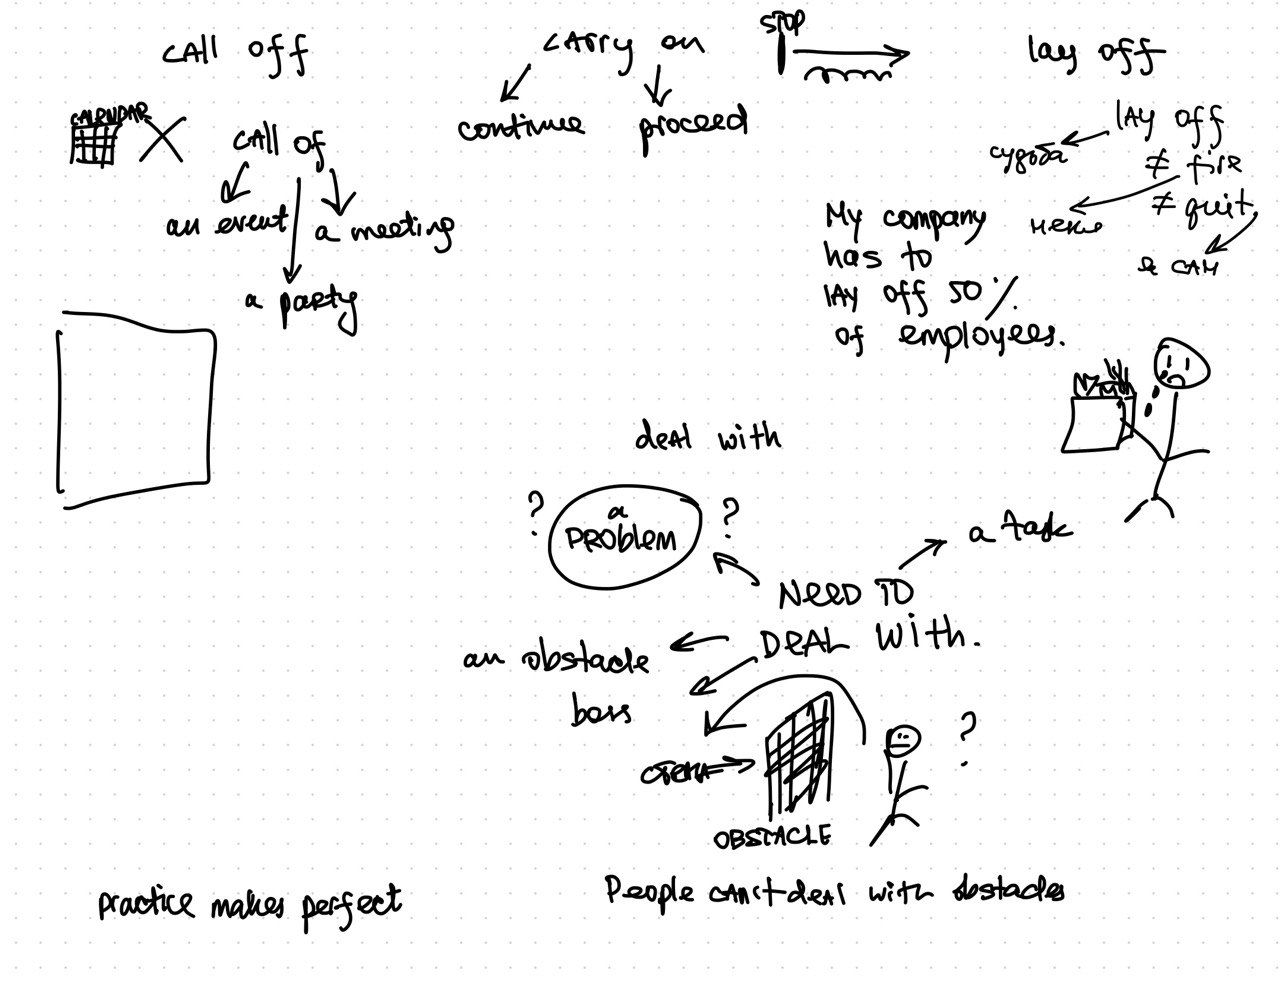 call off
CALENDAR
call of
an event
a meeting
a party
carry on
continue
proceed
STOP
lay off
lay off
≠ fire
≠ quit
My company
has to
lay off 50%
of employees.
deal with
?
a
PROBLEM
?
a task
NEED TO
DEAL WITH.
an obstacle
boss
?
OBSTACLE
People can't deal with obstacles
practice makes perfect